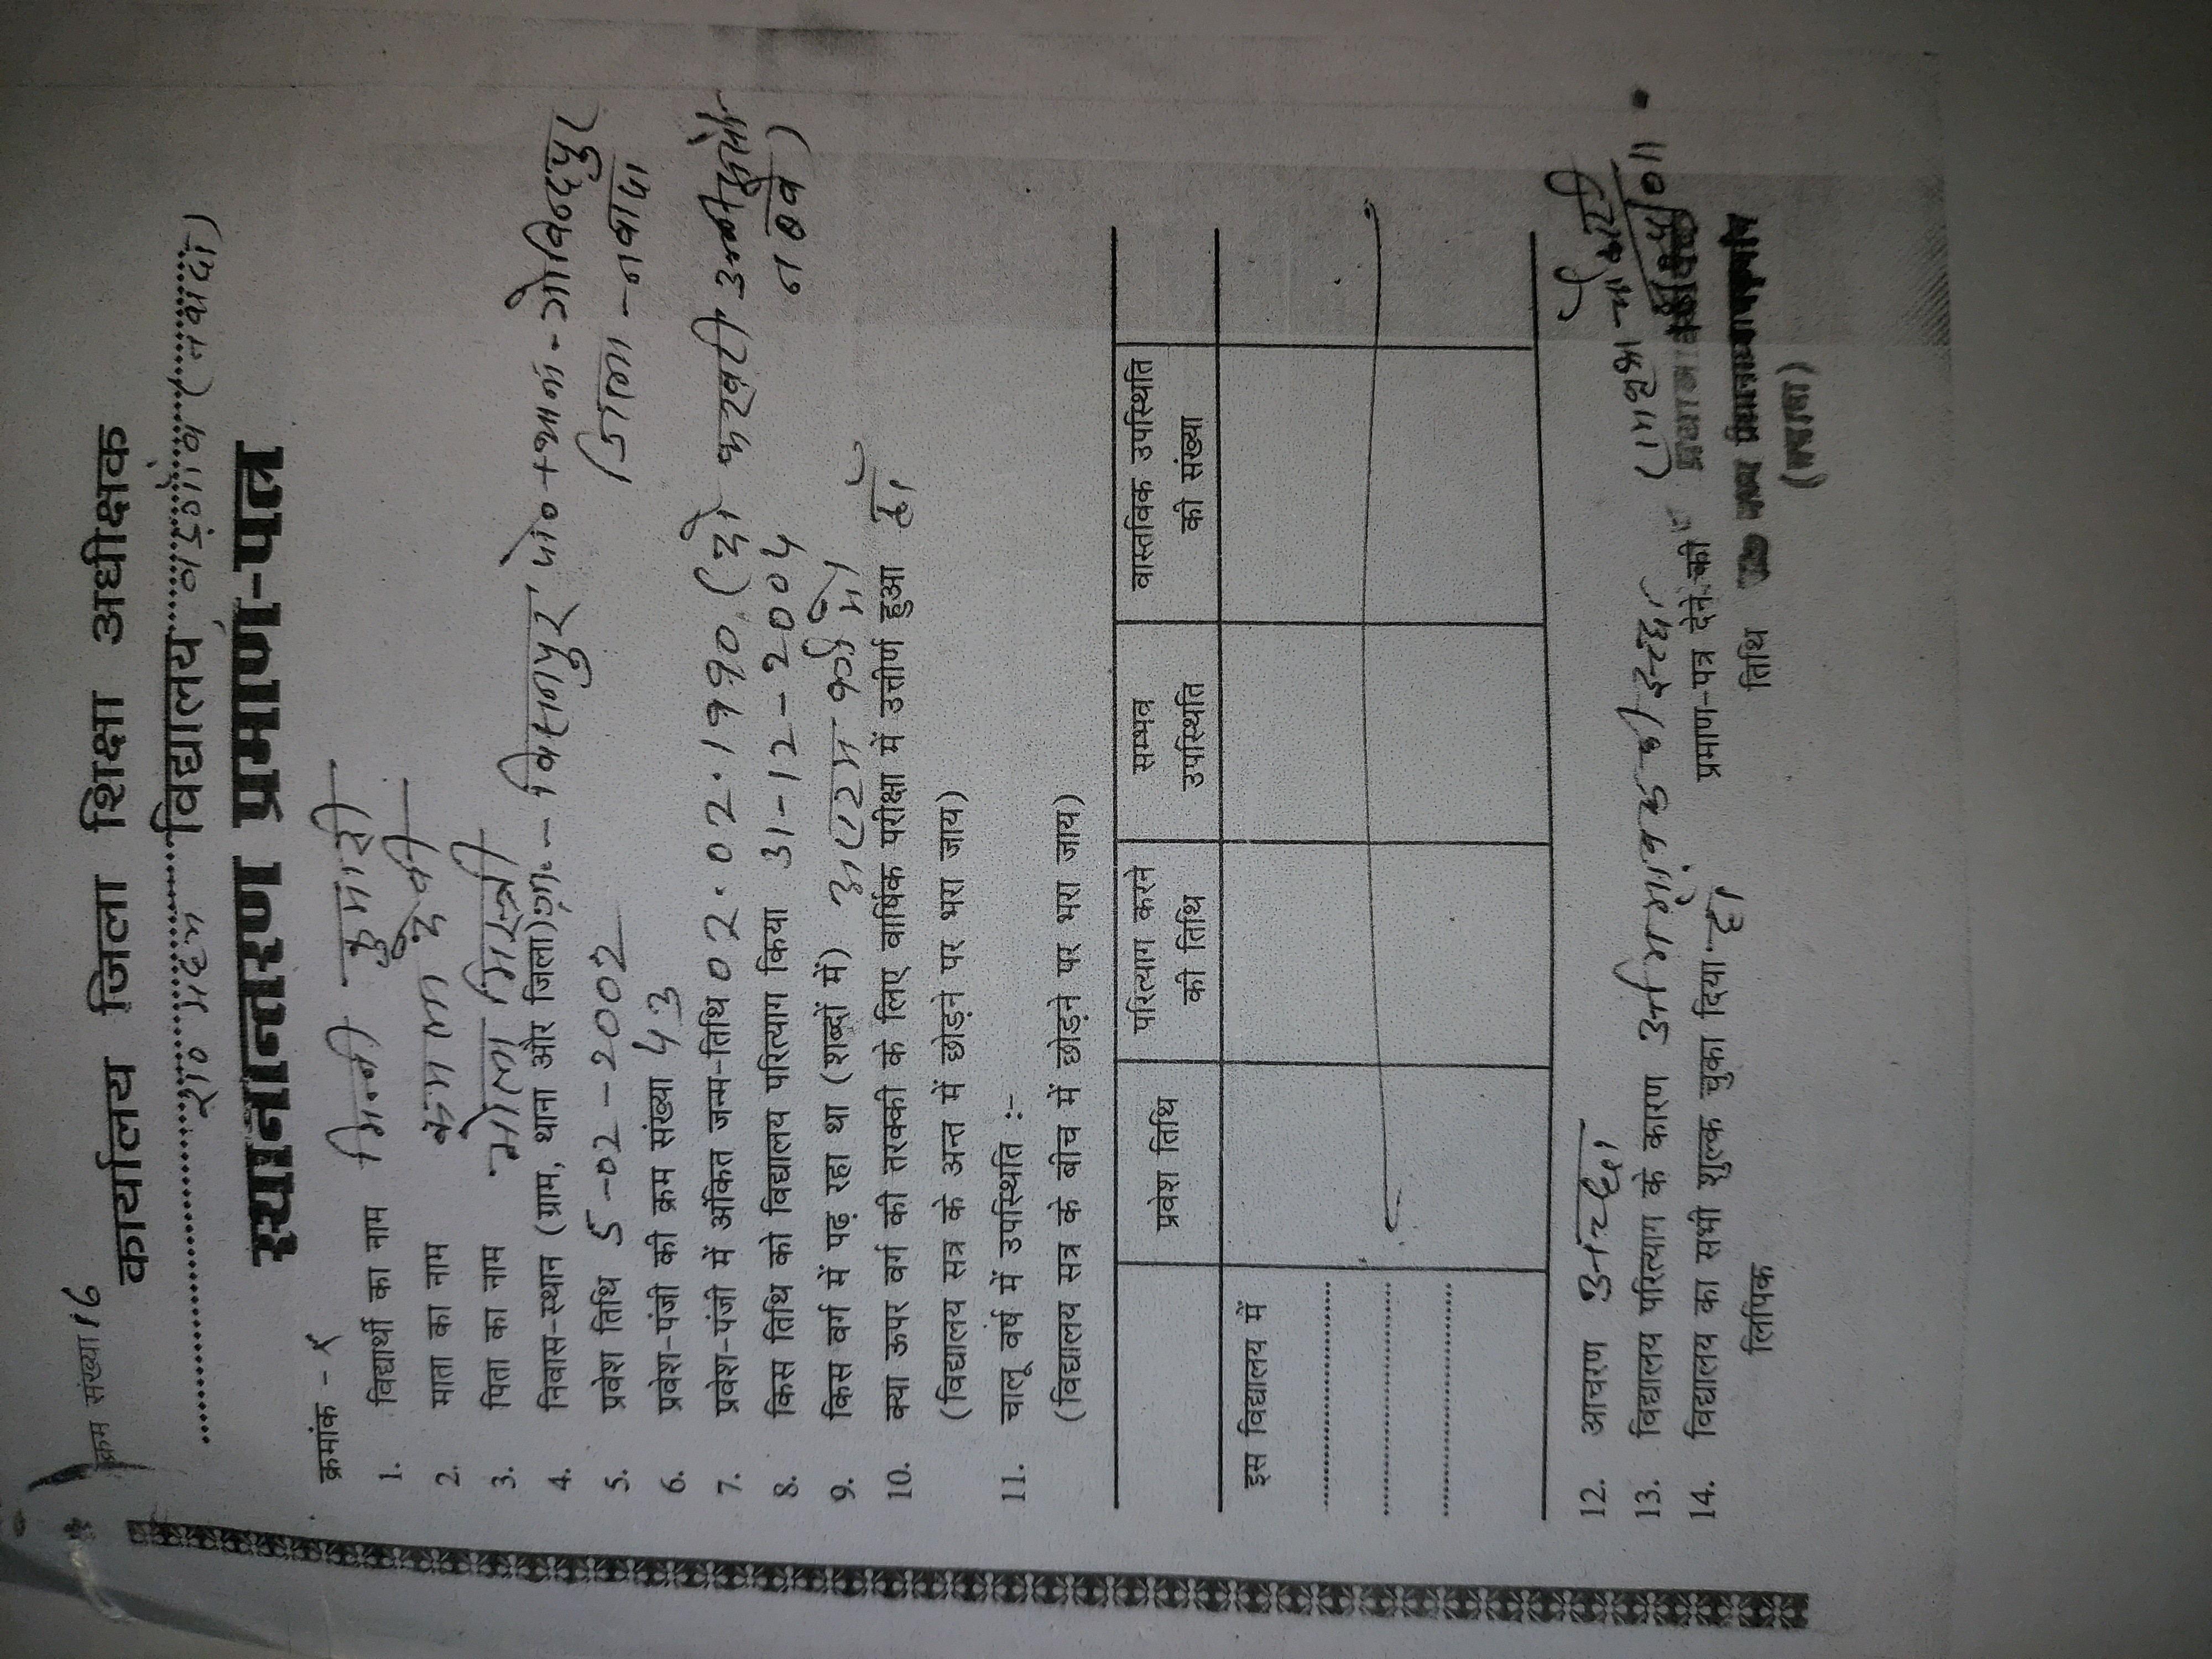 क्रम संख्या 16
कार्यालय जिला शिक्षा अधीक्षक
रा० मध्य विद्यालय बड़ैगाँव (नवादा)
स्थानान्तरण प्रमाण-पत्र
क्रमांक - x
1. विद्यार्थी का नाम मिन्नी कुमारी
2. माता का नाम कमला देवी
3. पिता का नाम भोला मिस्त्री
4. निवास-स्थान (ग्राम, थाना और जिला) ग्रा०- विसनपुर पो०+थाना-गोविन्दपुर
जिला - नवादा
5. प्रवेश तिथि 5-02-2002
6. प्रवेश-पंजी की क्रम संख्या 43
7. प्रवेश-पंजी में अंकित जन्म-तिथि 02.02.1990 (दो फरवरी उन्नीस सौ
नब्बे)
8. किस तिथि को विद्यालय परित्याग किया 31-12-2004
9. किस वर्ग में पढ़ रहा था (शब्दों में) अष्टम वर्ग में
10. क्या ऊपर वर्ग की तरक्की के लिए वार्षिक परीक्षा में उत्तीर्ण हुआ हाँ
(विद्यालय सत्र के अन्त में छोड़ने पर भरा जाय)
11. चालू वर्ष में उपस्थिति :-
(विद्यालय सत्र के बीच में छोड़ने पर भरा जाय)
प्रवेश तिथि परित्याग करने की तिथि सम्भव उपस्थिति वास्तविक उपस्थिति की संख्या
इस विद्यालय में
12. आचरण अच्छा
13. विद्यालय परित्याग के कारण अभिभावक की इच्छा
14. विद्यालय का सभी शुल्क चुका दिया हाँ प्रमाण-पत्र देने की
लिपिक तिथि
(नवादा)